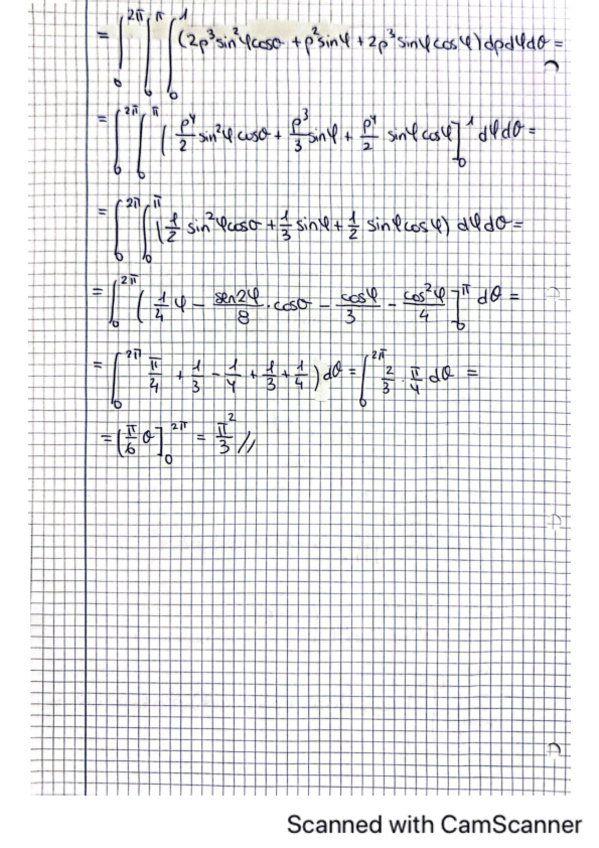 = ∫₀^2π ∫₀^π ∫₀^1 (2ρ³sin²φcosθ + ρ²sinφ + 2ρ³sinφcosφ) dρdφdθ =
= ∫₀^2π ∫₀^π ( ρ⁴/2 sin²φ cosθ + ρ³/3 sinφ + ρ⁴/2 sinφ cosφ ]₀^1 dφdθ =
= ∫₀^2π ∫₀^π (1/2 sin²φcosθ + 1/3 sinφ + 1/2 sinφcosφ) dφdθ =
= ∫₀^2π ( 1/4 φ − sen2φ/8 · cosθ − cosφ/3 − cos²φ/4 ]₀^π dθ =
= ∫₀^2π π/4 + 1/3 − 1/4 + 1/3 + 1/4 ) dθ = ∫₀^2π 2/3 · π/4 dθ =
= (π/6 θ ]₀^2π = π²/3 //
Scanned with CamScanner